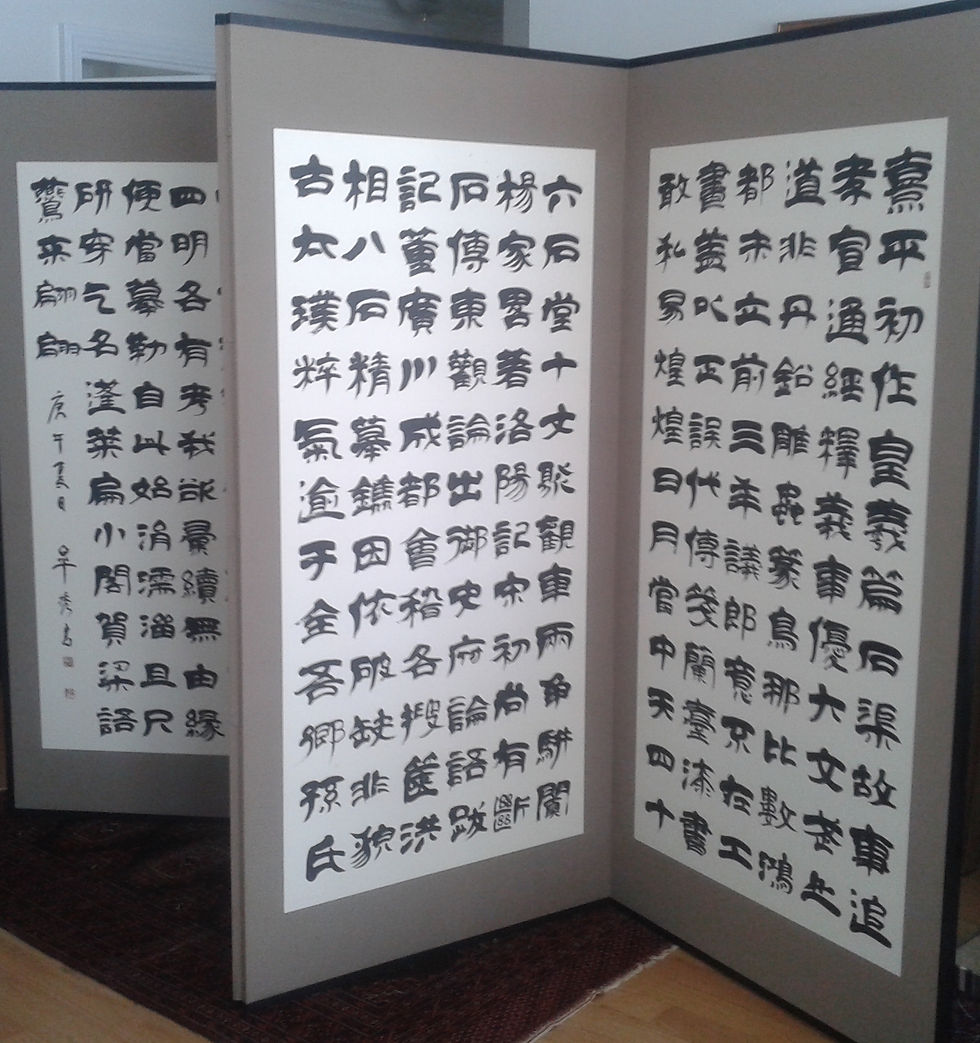 熹平初作皇羲篇石渠故事追
孝宣通經釋義事優大文武之
道非丹鉛雕蟲篆鳥那比數鴻
都未立前三年議郎意不在工
書蓋以正誤代傳箋蘭臺漆書
敢私易煌煌日月當中天四十
六石堂十丈聚觀車兩爭駢闐
楊家畧著洛陽記宋初尚有斷
石傳東觀論出御史府論語跋
記董廣川成都會稽各篋洪
相八石精摹鐫因依破缺非貌
古太璞粹氣逾于全吾鄉孫氏
四明各有考我欲彙續無由緣
便當摹勒自此始涓濡淄且尺
研穿乞名蓬萊扁小閣賀梁語
鷰来翩翩 庚午夏日 秀書